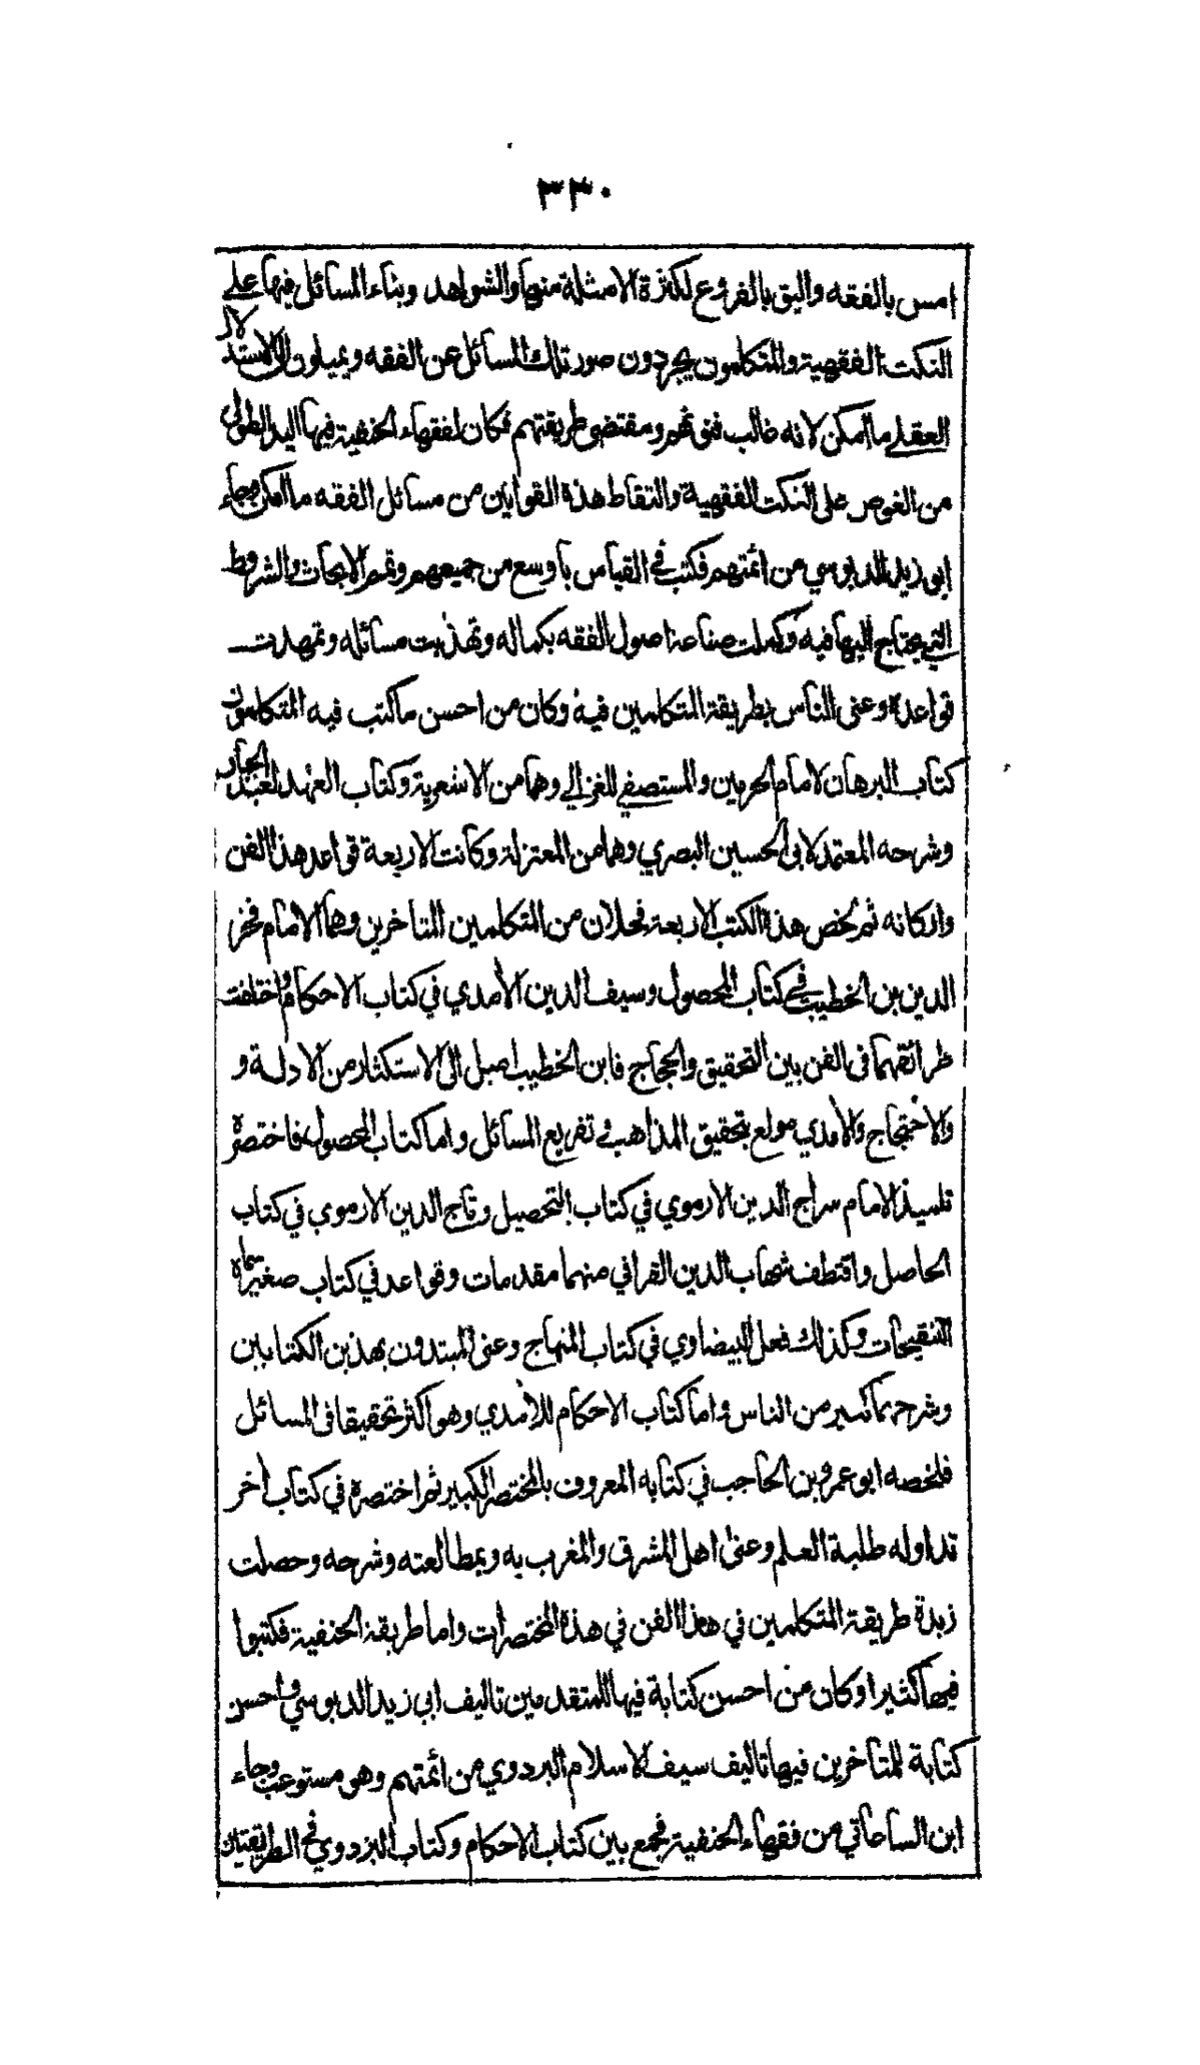 ٣٣٠
امس بالفقه واليق بالفروع لكثرة الامثلة منها والشواهد وبناء المسائل فيها على
النكت الفقهية والمتكلمون يجردون صور تلك المسائل عن الفقه ويميلون الى الاستدلال
العقلي ما امكن لانه غالب فنونهم ومقتضى طريقتهم فكان لفقهاء الحنفية فيها اليد الطولى
من الغوص على النكت الفقهية والتقاط هذه القوانين من مسائل الفقه ما امكن وجاء
ابو زيد الدبوسي من ائمتهم فكتب في القياس باوسع من جميعهم وتمم الابحاث والشروط
التي يحتاج اليها فيه وكملت صناعة اصول الفقه بكماله وتهذبت مسائله وتمهدت
قواعده وعنى الناس بطريقة المتكلمين فيه وكان من احسن ما كتب فيه المتكلمون
كتاب البرهان لامام الحرمين والمستصفى للغزالي وهما من الاشعرية وكتاب العهد لعبد الجبار
وشرحه المعتمد لابى الحسين البصري وهما من المعتزلة وكانت الاربعة قواعد هذا الفن
واركانه ثم لخص هذه الكتب الاربعة فحلان من المتكلمين المتاخرين وهما الامام فخر
الدين بن الخطيب في كتاب المحصول وسيف الدين الأمدي في كتاب الاحكام واختلفت
طرائقهما في الفن بين التحقيق والحجاج فابن الخطيب اميل الى الاستكثار من الادلة و
والاحتجاج والأمدي مولع بتحقيق المذاهب في تفريع المسائل واما كتاب المحصول فاختصره
تلميذ الامام سراج الدين الارموي في كتاب التحصيل وتاج الدين الارموي في كتاب
الحاصل واقتطف شهاب الدين القرافي منهما مقدمات وقواعد في كتاب صغير سماه
التنقيحات وكذلك فعل البيضاوي في كتاب المنهاج وعنى المبتدون بهذين الكتابين
وشرحهما كثير من الناس واما كتاب الاحكام للأمدي وهو اكثر تحقيقا في المسائل
فلخصه ابو عمرو بن الحاجب في كتابه المعروف بالمختصر الكبير ثم اختصره في كتاب أخر
تداوله طلبة العلم وعنى اهل المشرق والمغرب به وبمطالعته وشرحه وحصلت
زبدة طريقة المتكلمين في هذا الفن في هذه المختصرات واما طريقة الحنفية فكتبوا
فيها كثيرا وكان من احسن كتابة فيها للمتقدمين تاليف ابي زيد الدبوسي واحسن
كتابة للمتاخرين فيها تاليف سيف الاسلام البزدوي من ائمتهم وهو مستوعب وجاء
ابن الساعاتي من فقهاء الحنفية فجمع بين كتاب الاحكام وكتاب البزدوي في الطريقتين